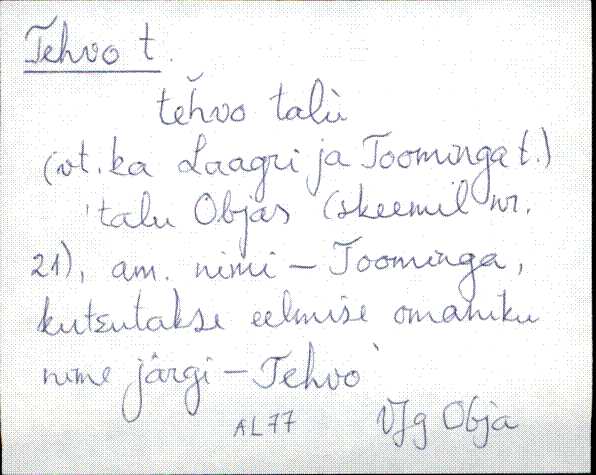 Tehvo t.
teȟvo talù
(vt. ka Laagri ja Toominga t.)
'talu Objas (skeemil nr.
21), am. nimi – Toominga,
kutsutakse eelmise omaniku
nime järgi – Tehvo'
AL77 VJg Obja